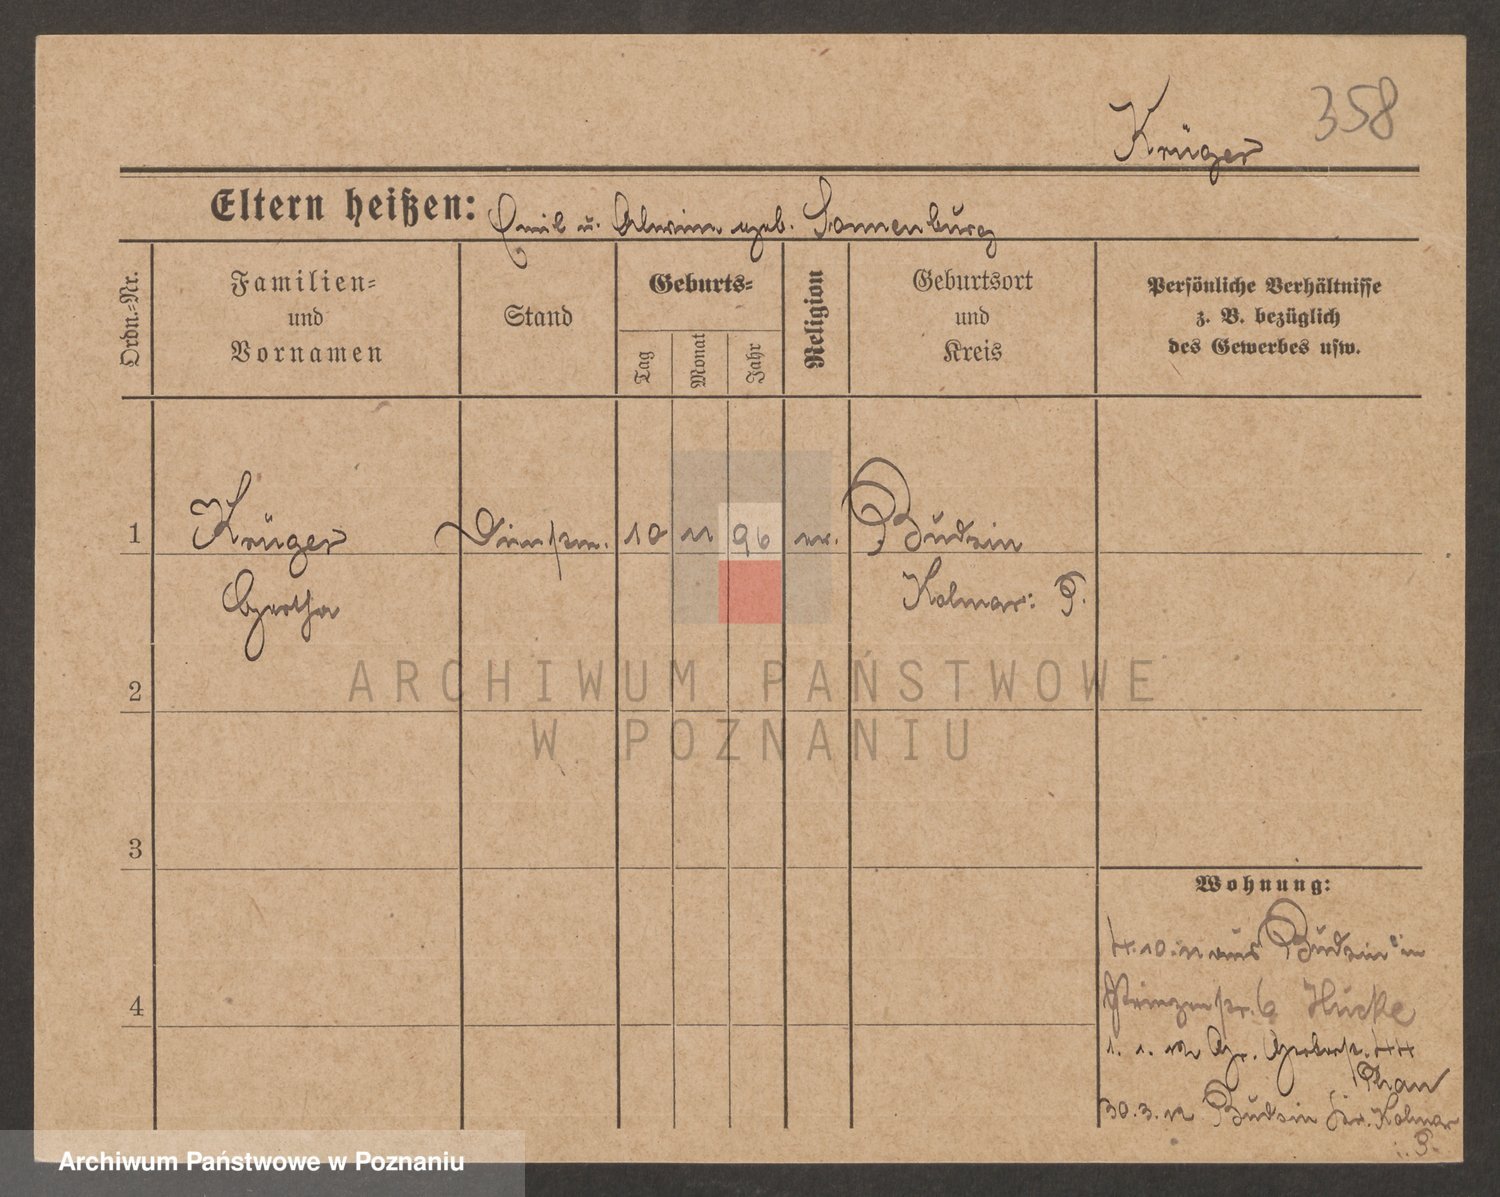 358
Krüger
Eltern heißen: Emil u. Alwine geb. Sonnenburg
Ordn.=Nr.
Familien=
und
Vornamen
Stand
Geburts=
Tag
Monat
Jahr
Religion
Geburtsort
und
Kreis
Persönliche Verhältnisse
z. B. bezüglich
des Gewerbes usw.
1 Krüger Dienstm. 10 11 96 ev. Budsin
Gertha Kolmar i. P.
2
3
4
Wohnung:
4.10.11 aus Budsin in
Prinzenstr. 6 Hucke
1. 1. 12 Gr. Gerberstr. 44
30.3.12 Budsin Kr. Kolmar
i. P.
ARCHIWUM PAŃSTWOWE
W POZNANIU
Archiwum Państwowe w Poznaniu